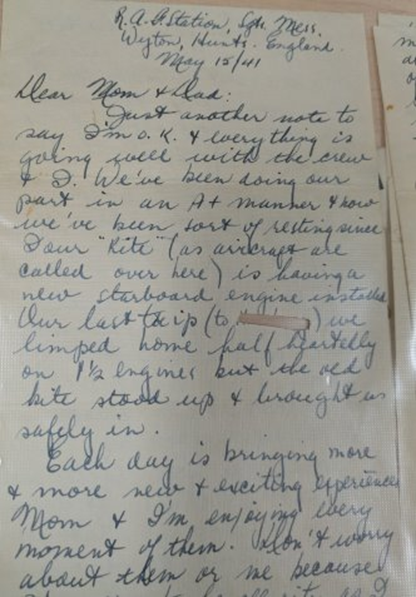 R.A.F. Station, Sgts. Mess.
Wyton, Hunts. England.
May 15/41
Dear Mom & Dad:
Just another note to
say I'm o.K. & everything is
going well with the crew
& I. We've been doing our
part in an A+ manner & now
we've been sort of resting since
our "Kite" (as aircraft are
called over here) is having a
new starboard engine installed
Our last trip (to ) we
limped home half heartedly
on 1½ engines but the old
kite stood up & brought us
safely in.
Each day is bringing more
& more new & exciting experiences
Mom & I'm enjoying every
moment of them. Don't worry
about them or me because